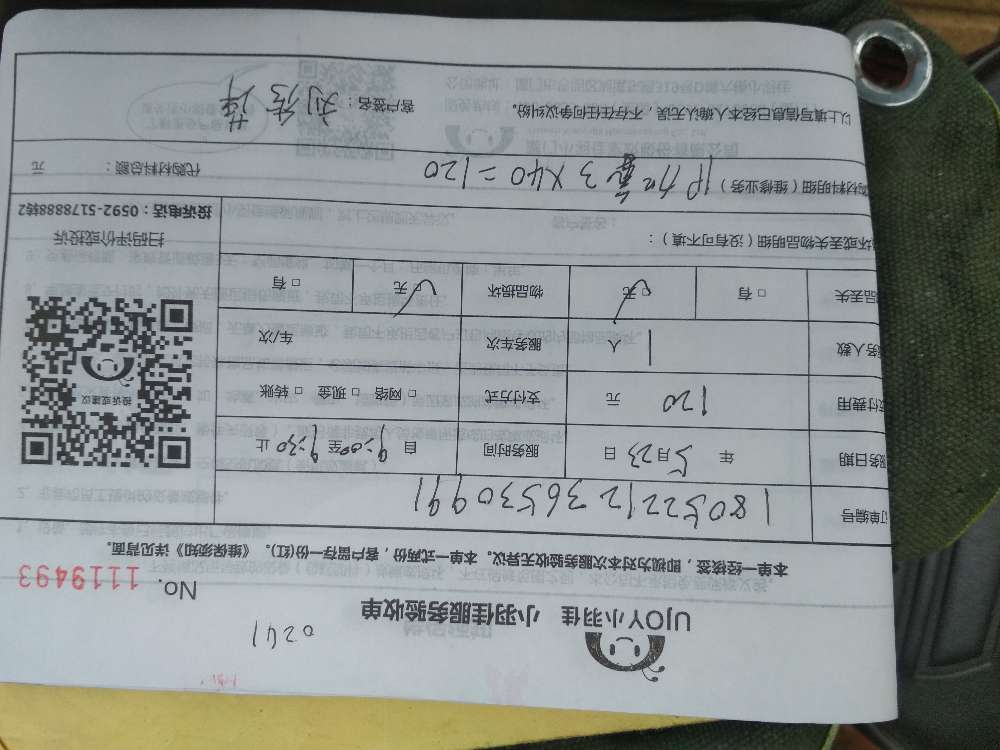 0241
UJOY小羽佳 小羽佳服务验收单
No. 1119493
本单一经接签，即视为对本次服务验收无异议。本单一式两份，客户留存一份(红)。《维保须知》详见背面。
订单编号 180522123653099 1
服务日期 年 5月23日 服务时间 自 9:00至9:30止
付费用 120 元 支付方式 □ 网络 □ 现金 □ 转账
务人数 1 人 服务车次 车/次
品丢失 □ 有 □ 无 物品损坏 □ 无 □ 有
坏或丢失物品明细（没有可不填）：
投诉或建议
扫码评价或投诉
投诉电话：0592-5178888转2
购材料明细（维修业务） 3×40=120 代购材料总额： 元
以上填写信息已经本人确认无误，不存在任何争议纠纷。 客户签名：